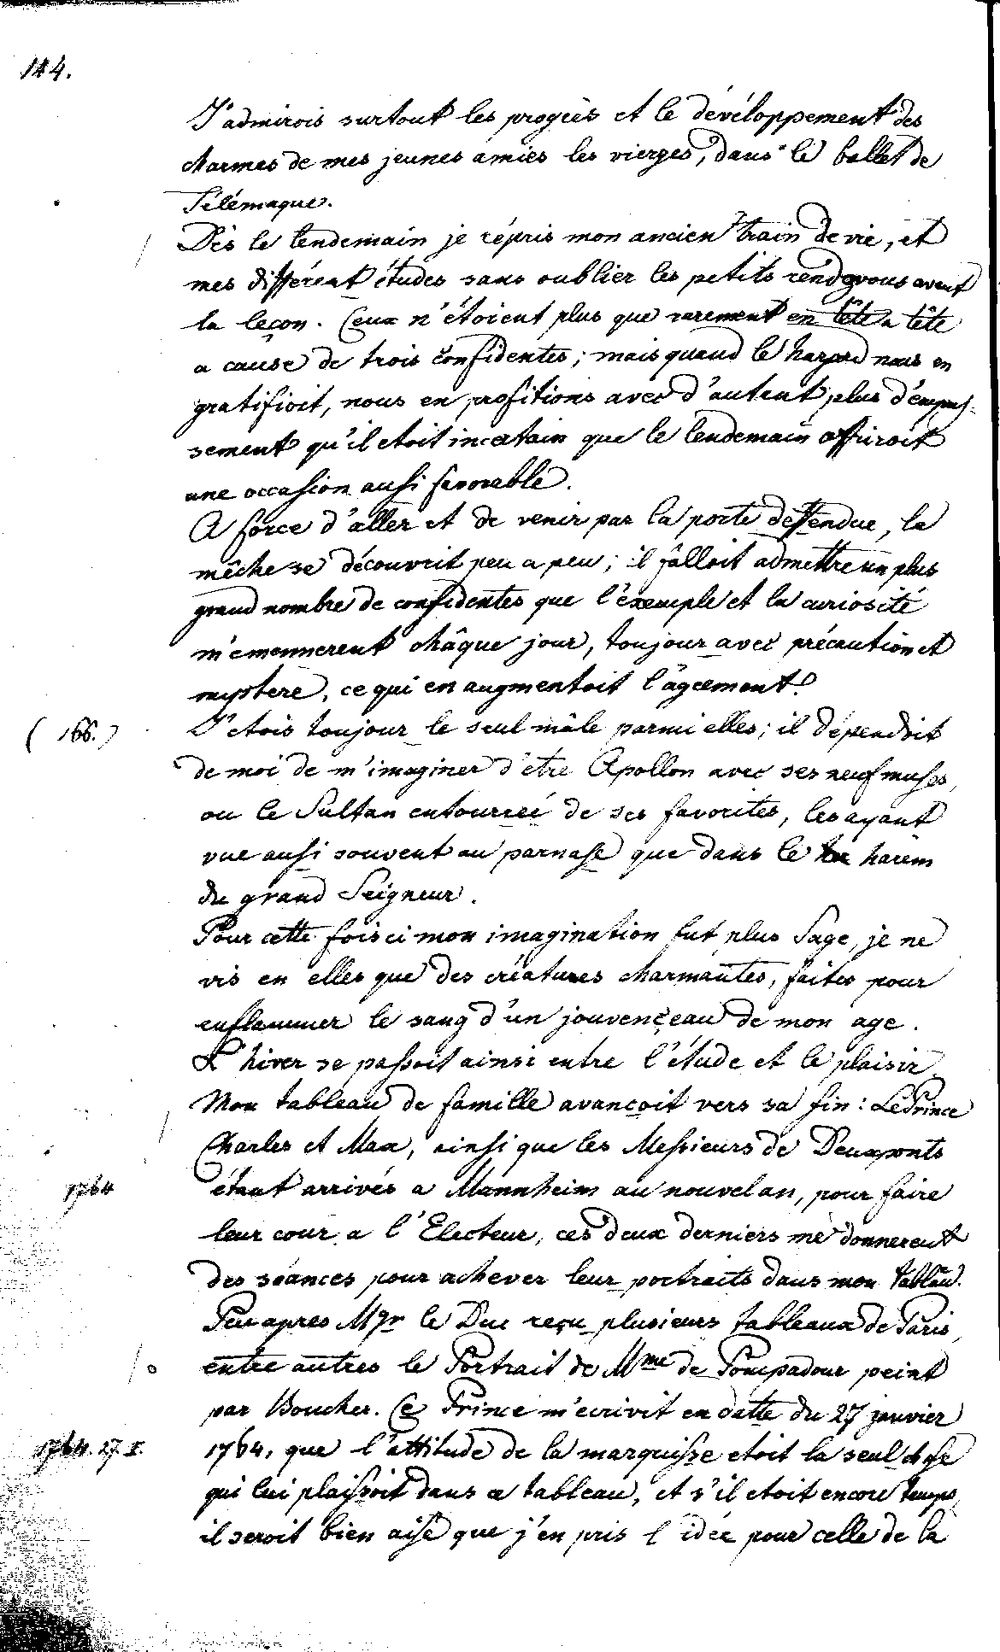 144.
J'admirois surtout les progrès et le développement des
charmes de mes jeunes amies les vierges, dans le ballet de
Télémaque.
Dès le lendemain je répris mon ancien train de vie, et
mes différent études sans oublier les petits rendevous avent
la leçon. Ceux n'étoient plus que rarement en tête a tête
a cause de trois confidentes; mais quand le hazard nous en
gratifioit, nous en profitions avec d'autent plus d'empres-
sement qu'il etoit incertain que le lendemain offriroit
une occasion aussi favorable.
A force d'aller et de venir par la porte deffendue, la
mêche se découvrit peu a peu; il falloit admettre un plus
grand nombre de confidentes que l'exemple et la curiosité
m'emmennerent châque jour, toujour avec précaution et
mystere, ce qui en augmentoit l'âgrement.
(166.) J'etois toujour le seul mâle parmi elles; il dépendoit
de moi de m'imaginer d'etre Apollon avec ses neuf muses,
ou le Sultan entourreé de ses favorites, les ayant
vue aussi souvent au parnasse que dans le harem
du grand Seigneur.
Pour cette fois ci mon imagination fut plus sage, je ne
vis en elles que des créatures charmantes, faites pour
enflammer le sang d'un jouvençeau de mon age.
L'hiver se passoit ainsi entre l'étude et le plaisir.
Mon tableau de famille avancoit vers sa fin: Le Prince
Charles et Max, ainsi que les Messieurs de Deuxponts
1764 étant arrivés a Mannheim au nouvel an, pour faire
leur cour a l'Electeur, ces deux derniers me donnerent
des séances pour achever leur portraits dans mon tableau.
Peu apres Mgr le Duc reçu plusieurs tableaux de Paris,
entre autres le Portrait de Mme de Pompadour peint
par Boucher. Ce Prince m'ecrivit en datte du 27 janvier
1764. 27. I. 1764, que l'attitude de la marquisse etoit la seul chose
qui lui plaissoit dans ce tableau, et s'il etoit encore temps,
il seroit bien aise que j'en pris l'idée pour celle de la